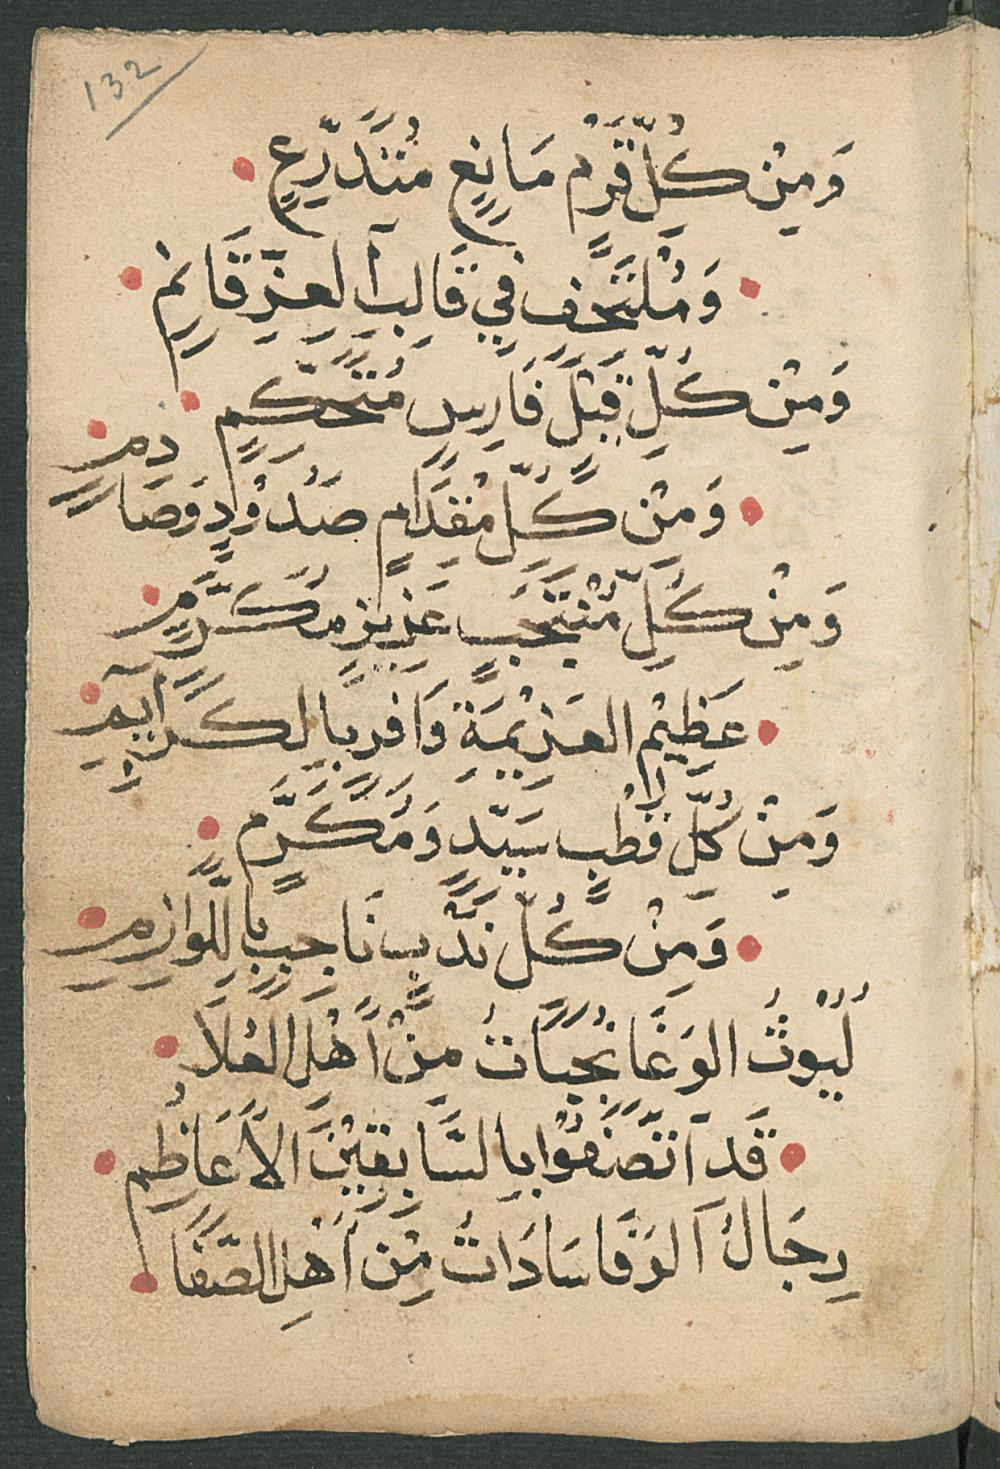 132
وَمِنْ كُلِّ قَرْمٍ مَانِعٍ مُتَدَرِّعٍ
وَمُلْتَحِفٍ فِي قَالِبِ الْعِزِّ قَائِمِ
وَمِنْ كُلِّ قَيْلٍ فَارِسٍ مُتَحَكِّمٍ
وَمِنْ كُلِّ مِقْدَامٍ صَدُوْدٍ وَصَادِمِ
وَمِنْ كُلِّ مُنْتَجَبٍ عَزِيزٍ مُكَرَّمٍ
عَظِيْمِ العَزِيْمَةِ وَافِرٍ بِالكَرَايِمِ
وَمِنْ كُلِّ قُطْبٍ سَيِّدٍ وَمُكَرَّمٍ
وَمِنْ كُلِّ نَدْبٍ نَاجِبٍ بِاللَّوَازِمِ
لُيُوْثُ الوَغَا نُجَبَاتُ مِنْ أَهْلِ العُلَا
قَد اتَّصَفُوْا بِالسَّابِقِيْنَ الأَعَاظِمِ
رِجَالُ الوَفَا سَادَاتُ مِنْ أَهْلِ الصَّفَا